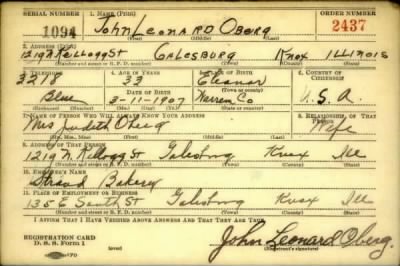 SERIAL NUMBER 1. NAME (Print) ORDER NUMBER
1094 JOHN LEONARD OBERG 2437
(First) (Middle) (Last)
2. ADDRESS (Print)
1219 N. KELLOGG ST GALESBURG KNOX ILLINOIS
(Number and street or R. F. D. number) (Town) (County) (State)
3. TELEPHONE 4. AGE IN YEARS 5. PLACE OF BIRTH 6. COUNTRY OF CITIZENSHIP
3218 33 Eleanor
(Town or county)
Blue DATE OF BIRTH
3-11-1907 Warren Co U. S. A.
(Exchange) (Number) (Mo.) (Day) (Yr.) (State or country)
7. NAME OF PERSON WHO WILL ALWAYS KNOW YOUR ADDRESS 8. RELATIONSHIP OF THAT PERSON
Mrs Judith Oberg Wife
(Mr., Mrs., Miss) (First) (Middle) (Last)
9. ADDRESS OF THAT PERSON
1219 N. Kellogg St Galesburg Knox Ill
(Number and street or R. F. D. number) (Town) (County) (State)
10. EMPLOYER'S NAME
Strand Bakery
11. PLACE OF EMPLOYMENT OR BUSINESS
135 E South St Galesburg Knox Ill
(Number and street or R. F. D. number) (Town) (County) (State)
I AFFIRM THAT I HAVE VERIFIED ABOVE ANSWERS AND THAT THEY ARE TRUE.
REGISTRATION CARD
D. S. S. Form 1 John Leonard Oberg.
(Registrant's signature)